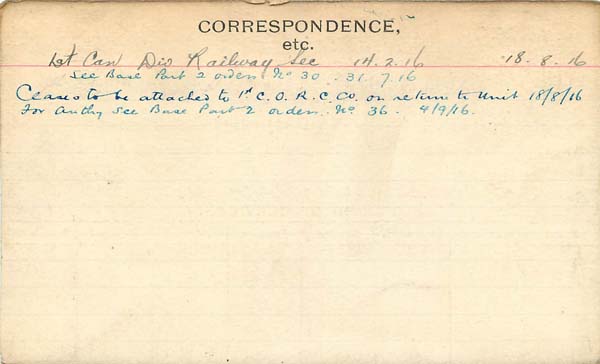 CORRESPONDENCE,
etc.
1st Can Div Railway Sec 14.2.16 18.8.16
See Base Part 2 orders No 30. 31.7.16
Ceases to be attached to 1st C.O.R.C.Co. on return to Unit 18/8/16
For Authy see Base Part 2 orders. No. 36. 4/9/16.